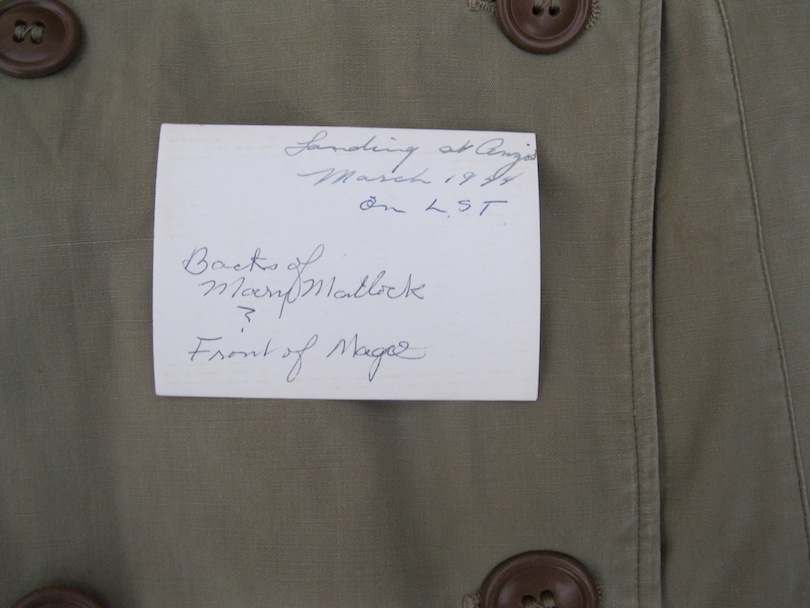 Landing at Anzio
March 1944
On L.S.T.
Backs of
Mary Matlock
?
Front of Magee